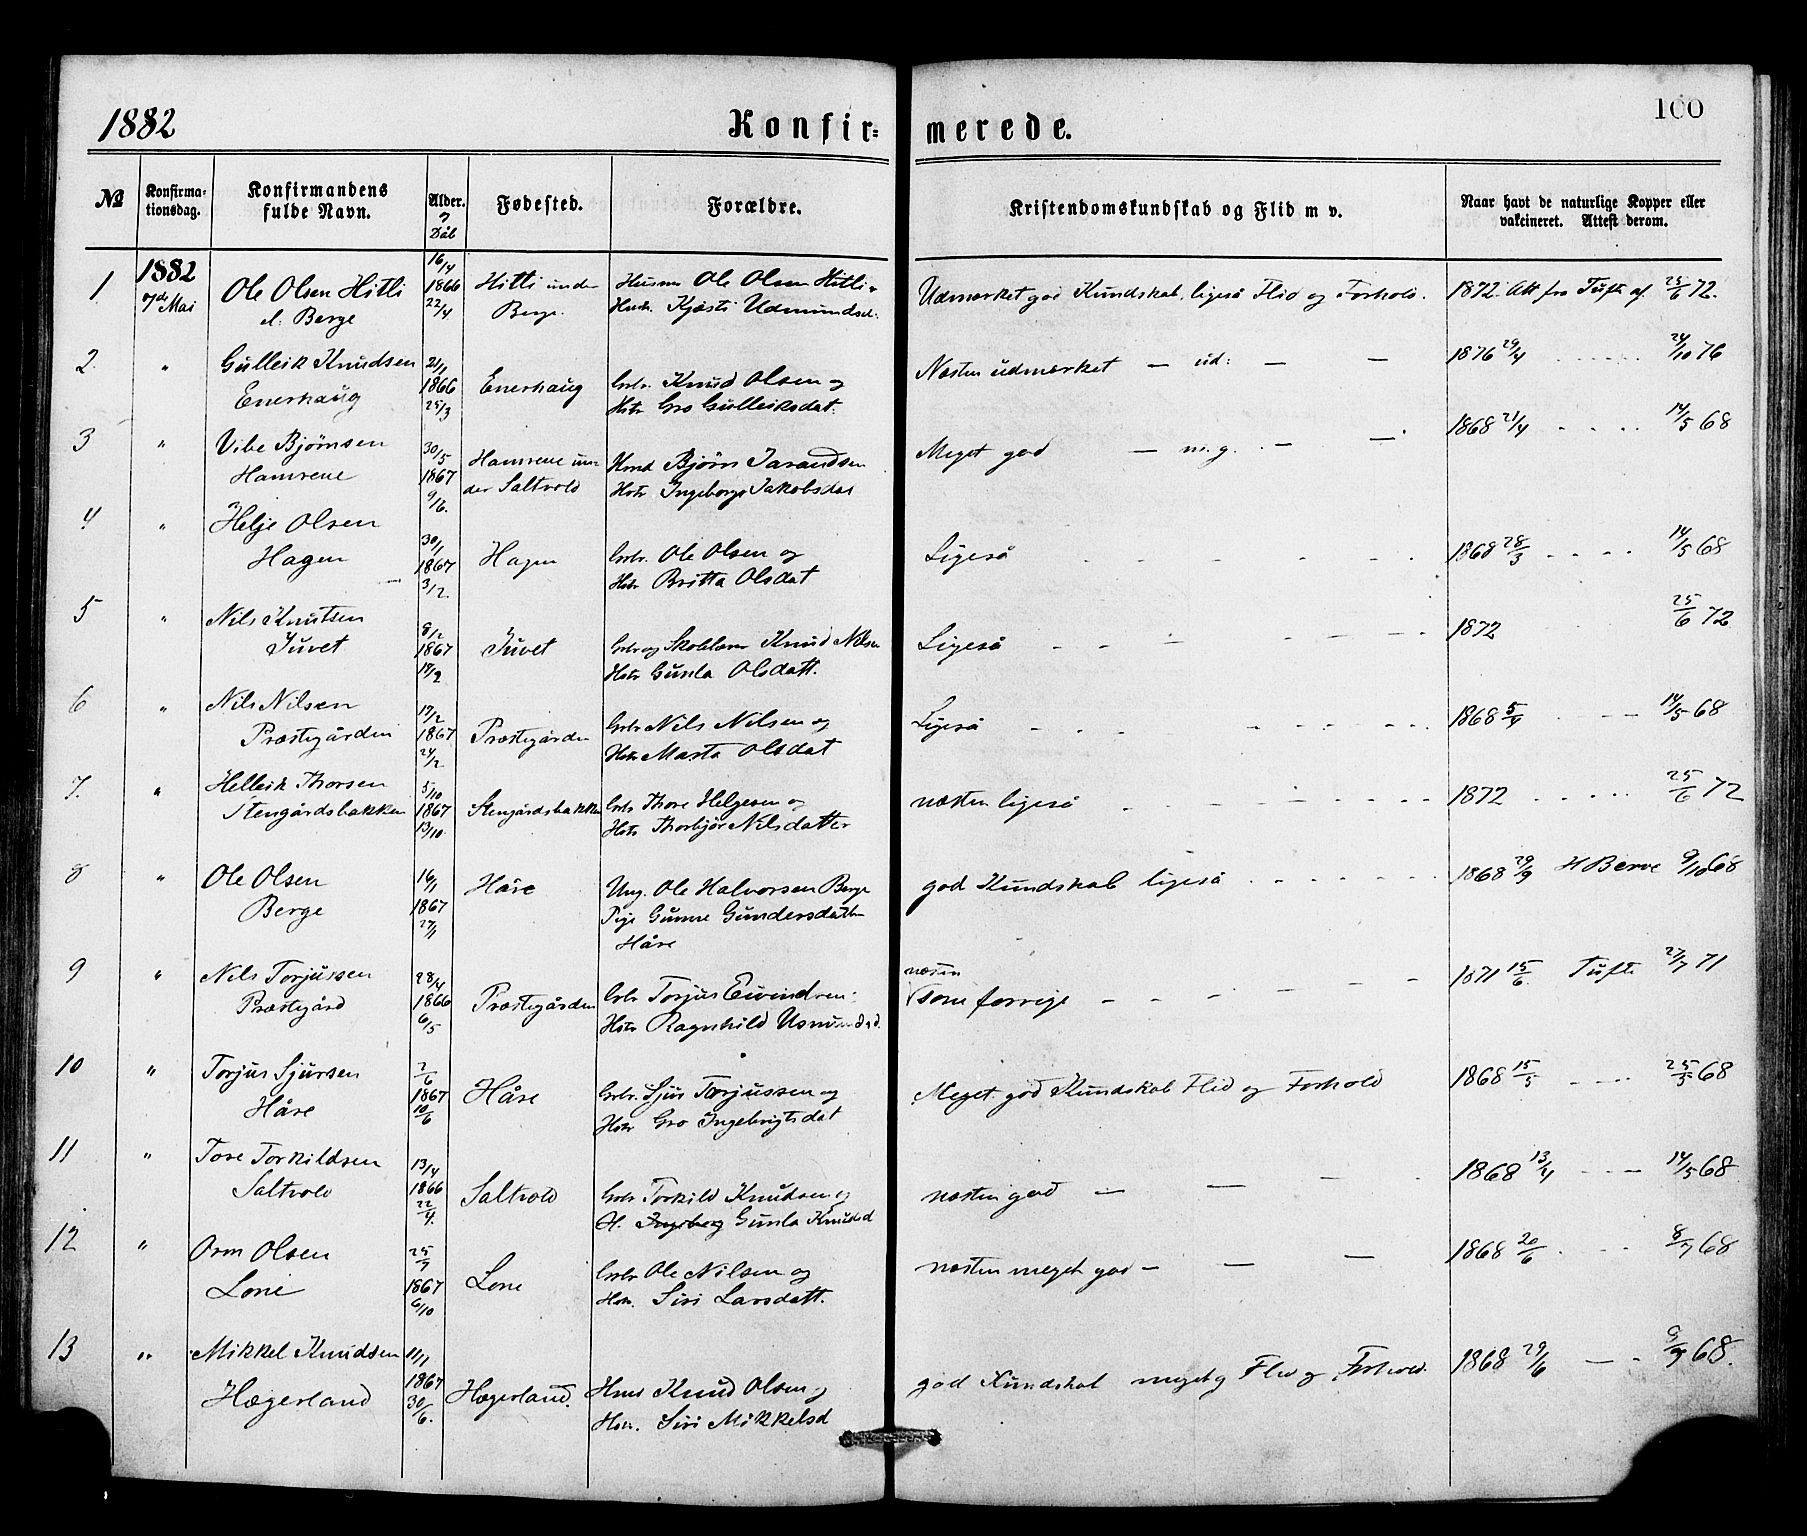 1882 Konfirmerede. 100
№ Konfirmationsdag. Konfirmandens fulde Navn. Alder. Dåb Fødested. Forældre. Kristendomskundskab og Flid m v. Naar havt de naturlige Kopper eller vakcineret. Attest derom.
1 1882 Ole Olsen Hitli 16/4 1866 22/4 Hitli under Husm Ole Olsen Hitli Udmerket god Kundskab, ligeså Flid og Forhold. 1872. Att fra Tufte af 25/6 72.
7de Mai Berge Berge. Hust. Kjøsti Udmundsd.
2. " Gulleik Knudsen 21/1 1866 25/3 Enerhaug Grbr. Knud Olsen og Næsten udmerket — ud: — — 1876 29/4 24/10 76
Enerhaug Hstr Gro Gulleiksdat.
3 " Vibe Bjørnsen 30/5 1867 9/6. Hamrene un- Hmd Bjørn Tarandsen Meget god — m.g. — — 1868 21/4 14/5 68
Hamrene der Saltvold Hstr Ingeborg Jakobsdat
4 " Helje Olsen 30/1 1867 3/2. Hagen Grbr. Ole Olsen og Ligeså 1868 28/3 14/5 68
Hagen Hstr Britta Olsdat
5 " Nils Knutsen 8/2 1867 17/2 Juvet Grbr og Skolelærer Knud Nilsen Ligeså 1872 25/6 72
Juvet Hstr Gunla Olsdatt.
6 " Nils Nilsen 17/2 1867 24/2 Præstegården Grbr Nils Nilsen og Ligeså 1868 5/4 14/5 68
Præstegården Hstr Marta Olsdat
7. " Helleik Thorsen 5/10 1867 13/10. Stengårdsbakken Grbr Thore Helgesen og næsten ligeså 1872 25/6 72
Stengårdsbakken Hstr Thorbjør Nilsdatter
8 " Ole Olsen 16/1 1867 27/1 Håre Ung. Ole Halvorsen Berge god Kundskab ligeså 1868 29/9 H Berve 9/10 68
Berge Pige Gunne Gundersdatter
Håre
9 " Nils Torjussen 28/4 1866 6/5 Præstegården Grbr Torjus Eivindsen næsten som forrige — — 1871 15/6. Tufte 27/7 71
Præstegård Hstr Ragnhild Asmundsd.
10 " Torjus Sjursen 2/6 1867 10/6 Håre Grbr. Sjur Torjussen og Meget god Kundskab Flid og Forhold 1868 15/5 25/5 68
Håre Hstr Gro Ingebrigtsdat
11 " Tore Torkildsen 13/4 1866 22/4. Saltvold Grbr Torkild Knudsen og næsten god — — — 1868 13/4 — — 14/5 68
Saltvold H. Ingeborg Gunla Knudsd
12 " Orm Olsen 25/7 1867 6/10 Lone Grbr Ole Nilsen og næsten meget god — — — 1868 20/6 8/7 68
Lone Hstr. Siri Larsdatt.
13 " Mikkel Knudsen 11/1 1867 30/6. Hægerland. Hms Knud Olsen og god Kundskab meget g Flid og Forhold. 1868 29/6 — 9/7 68.
Hægerland Hstr. Siri Mikkelsd